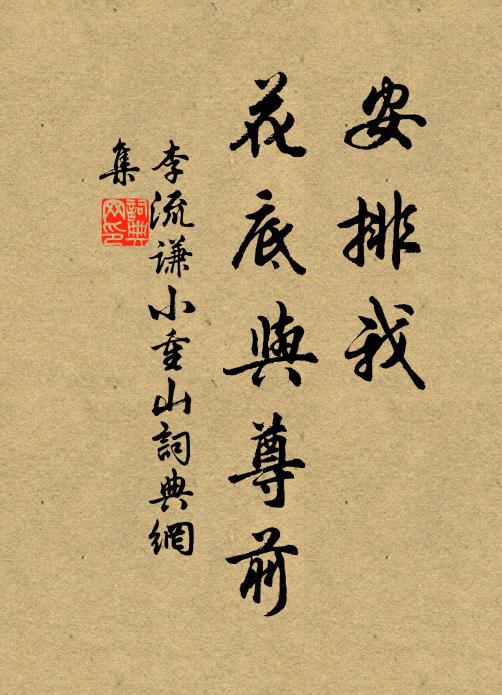 安排我
花底與尊前
李流谦小重山詞典網
集
詞典网印